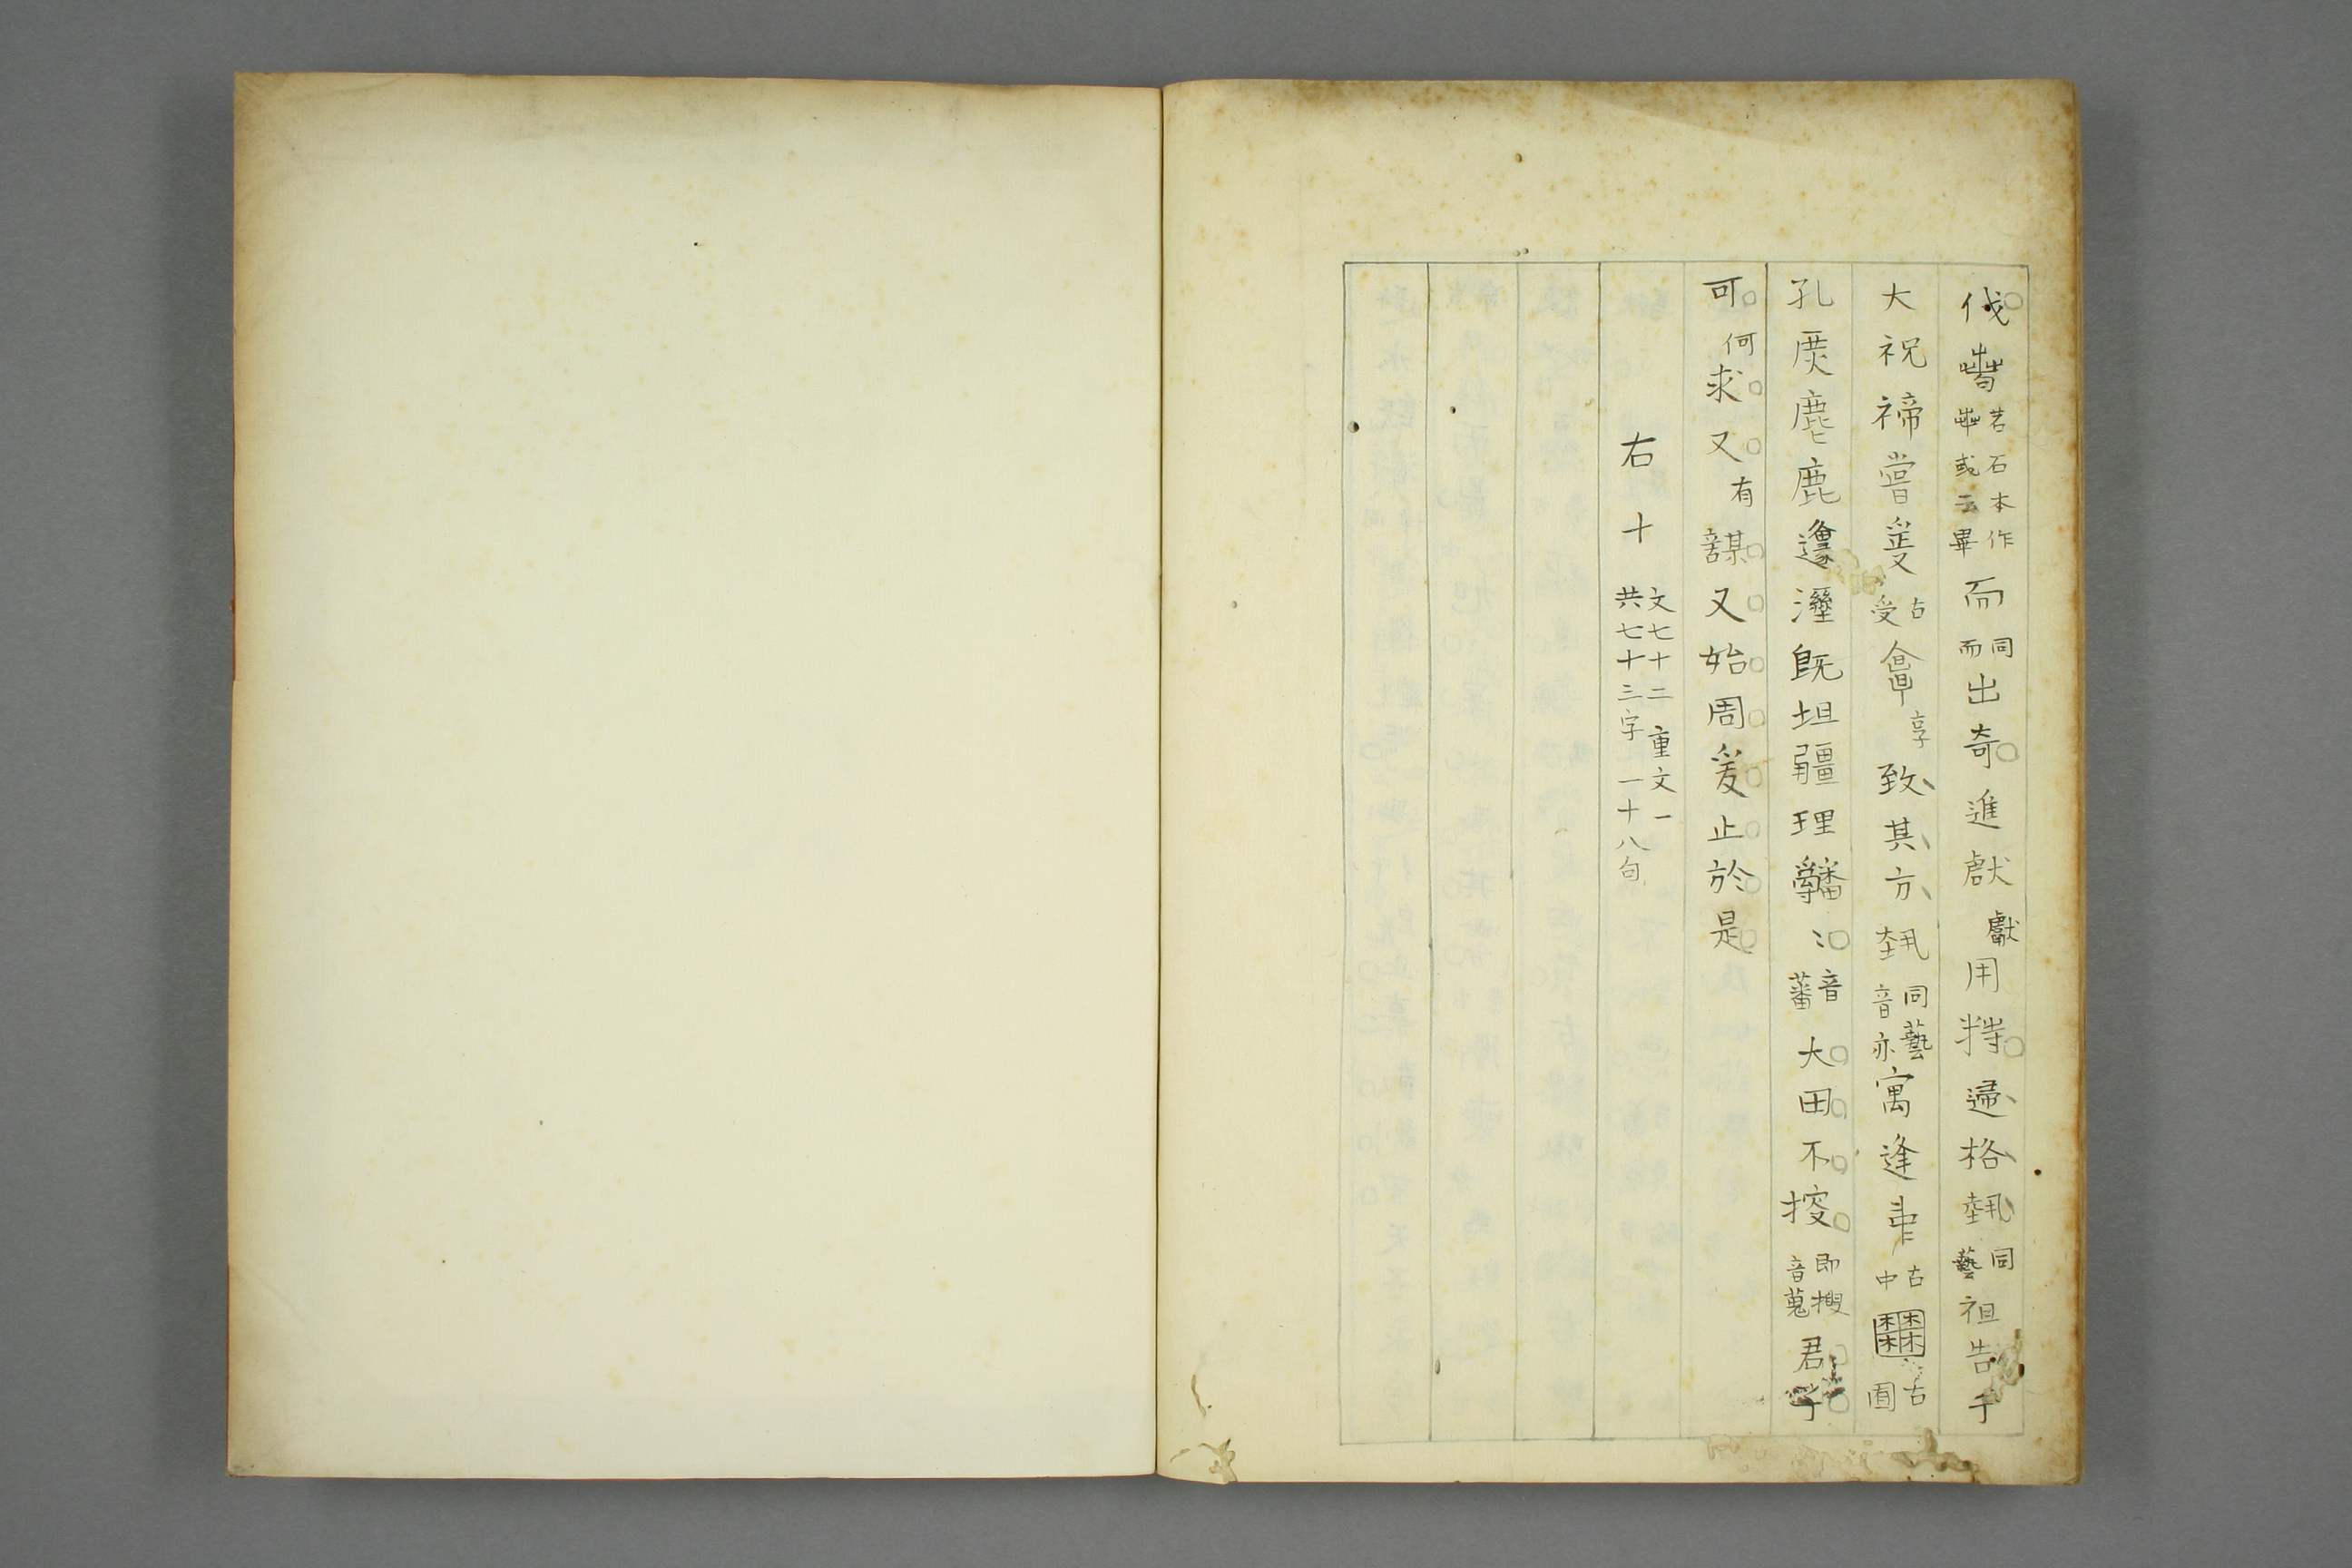 伐若石本作或云畢而同而出奇進献獻用特𨔝格埶同藝祖告于
大祝禘嘗受古受享致其方埶同藝音亦寓逢古中古囿
孔麀鹿邍溼既坦疆理〻音蕃大田不㨮即搜音蒐君子
可何求又有謀又始周爰止於是
右十文七十二重文一共七十三字一十八句